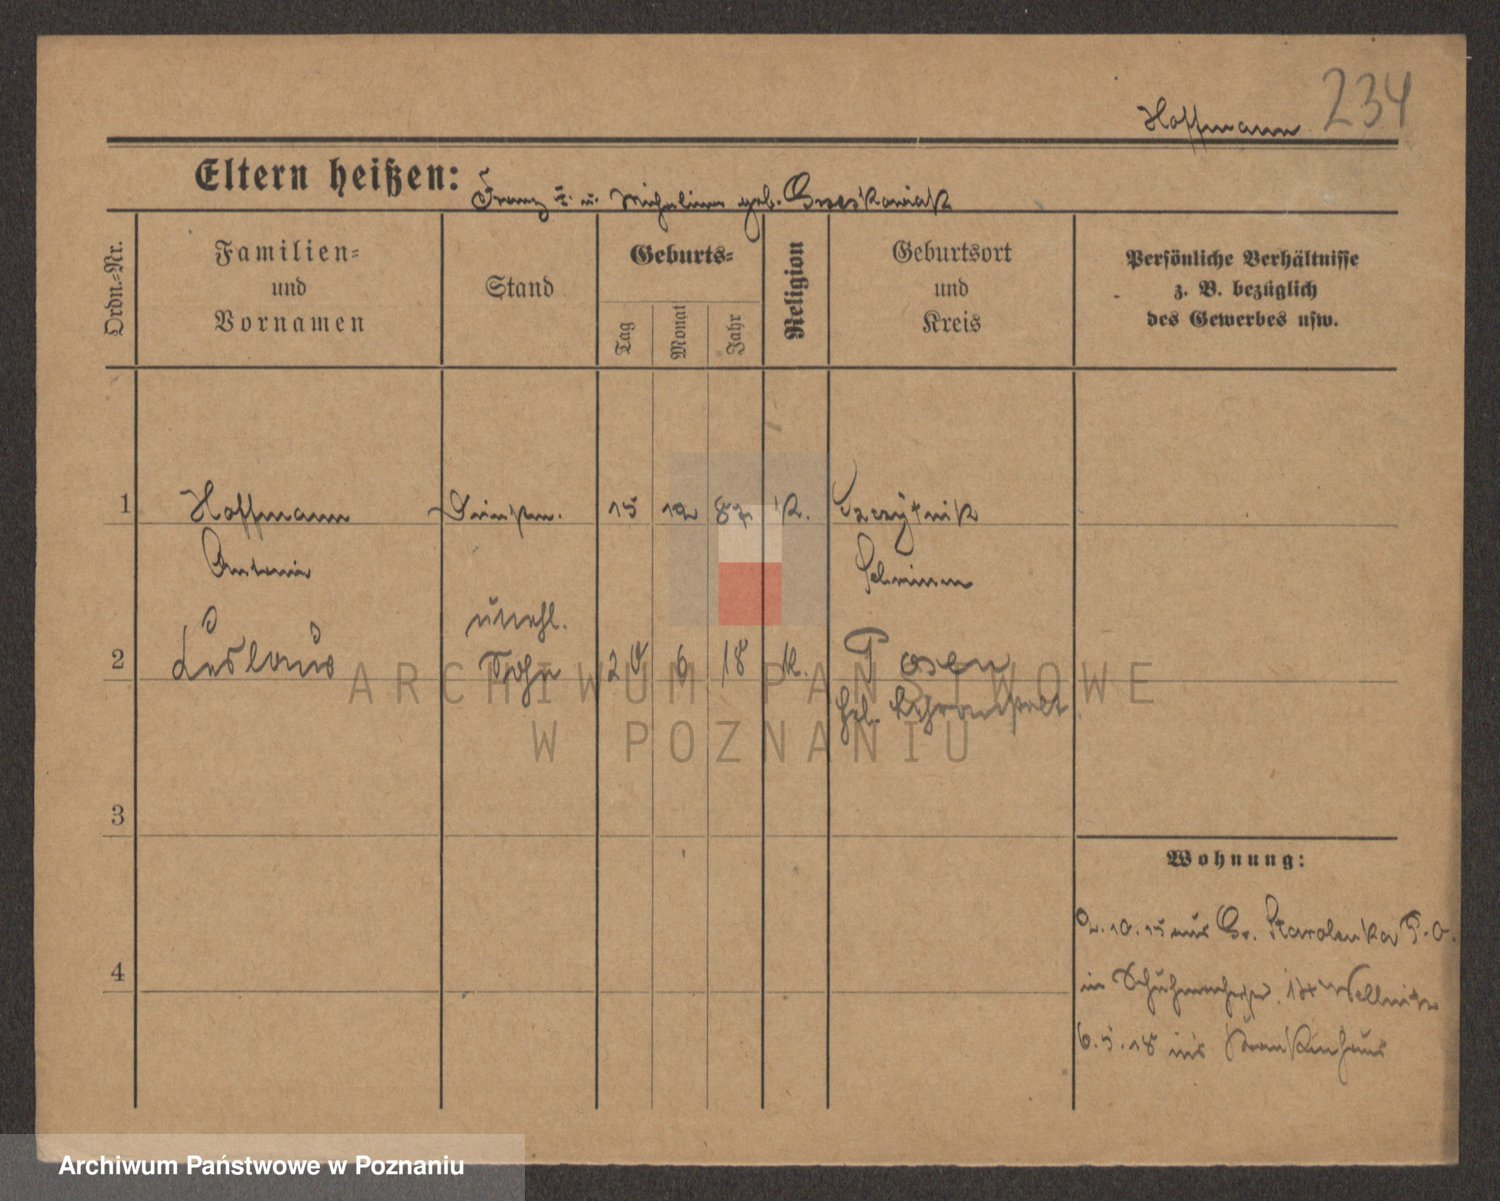 234
Hoffmann
Eltern heißen: Franz † u. Michalina geb.
Ordn.=Nr.
Familien=
und
Vornamen
Stand
Geburts=
Tag
Monat
Jahr
Religion
Geburtsort
und
Kreis
Persönliche Verhältnisse
z. B. bezüglich
des Gewerbes usw.
1 Hoffmann 15 12 87 K. Szczytnik
Antonie Schrimm
unehl.
2 Leslaus Sohn 20 6 18 K. Posen
Lehranstalt
3
4
Wohnung:
2.10.15 aus Gr. Starolenka P.O.
in 
6.5.18 ins Krankenhaus
ARCHIWUM PAŃSTWOWE
W POZNANIU
Archiwum Państwowe w Poznaniu